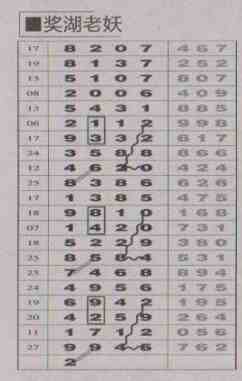 ■奖湖老妖
17 8 2 0 7 4 6 7
19 8 1 3 7 2 5 2
15 5 1 0 7 8 0 7
08 2 0 0 6 4 0 9
13 5 4 3 1 8 8 5
06 2 1 1 2 9 9 8
17 9 3 3 2 6 1 7
24 3 5 8 8 8 6 6
12 4 6 2 0 4 2 4
25 8 3 8 6 6 2 6
17 1 3 8 5 4 7 5
18 9 8 1 0 1 6 8
07 1 4 2 0 7 3 1
18 5 2 2 9 3 8 0
25 8 5 8 4 5 3 1
25 7 4 6 8 8 9 4
24 4 9 5 6 1 7 5
19 6 9 4 2 1 9 5
20 4 2 5 9 2 6 4
11 1 7 1 2 0 5 6
27 9 9 4 5 7 6 2
2